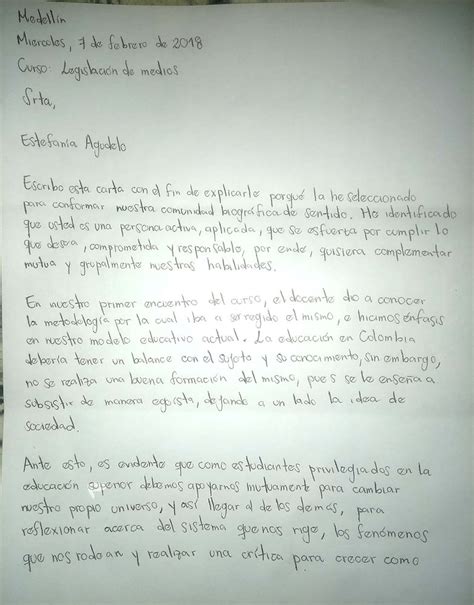 Medellín
Miercoles, 7 de febrero de 2018
Curso: Legislación de medios
Srta,
Estefanía Agudelo
Escribo esta carta con el fin de explicarle porqué la he seleccionado
para conformar nuestra comunidad biográfica de sentido. He identificado
que usted es una persona activa, aplicada, que se esfuerza por cumplir lo
que desea, comprometida y responsable, por ende, quisiera complementar
mutua y grupalmente nuestras habilidades.
En nuestro primer encuentro del curso, el docente dio a conocer
la metodología por la cual iba a ser regido el mismo, e hicimos énfasis
en nuestro modelo educativo actual. La educación en Colombia
debería tener un balance con el sujeto y su conocimiento, sin embargo,
no se realiza una buena formación del mismo, pues se le enseña a
subsistir de manera egoísta, dejando a un lado la idea de
sociedad.
Ante esto, es evidente que como estudiantes privilegiados en la
educación superior debemos apoyarnos mutuamente para cambiar
nuestro propio universo, y así llegar al de los demás, para
reflexionar acerca del sistema que nos rige, los fenómenos
que nos rodean y realizar una crítica para crecer como